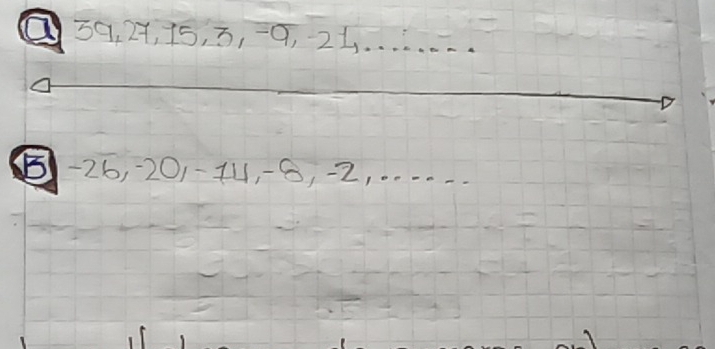 a 39, 27, 15, 3, -9, -21, ........
B -26, -20, -14, -8, -2, ......